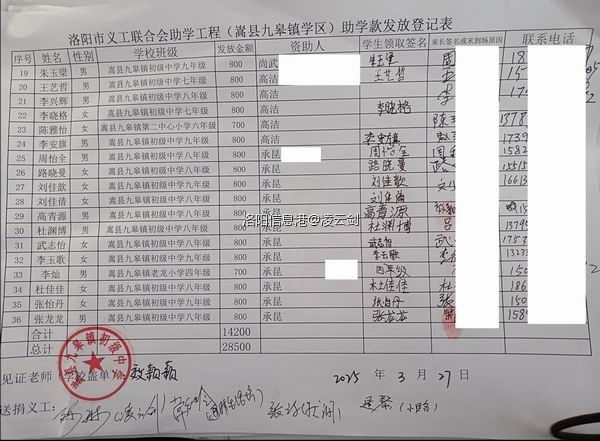 洛阳市义工联合会助学工程（嵩县九皋镇学区）助学款发放登记表
序号 姓名 性别 学校班级 发放金额 资助人 学生领取签名 家长签名或未到场原因 联系电话
19 朱玉梁 男 嵩县九皋镇初级中学九年级 800 尚武 朱玉梁 周 18
20 王艺哲 男 嵩县九皋镇初级中学七年级 800 高洁 王艺哲 王 15
21 李兴辉 男 嵩县九皋镇初级中学八年级 800 高洁 李 17
22 李晓格 女 嵩县九皋镇初级中学七年级 800 高洁 李晓格
23 陈雅怡 女 嵩县九皋镇第二中心小学六年级 700 高洁 1378
24 李安旗 男 嵩县九皋镇初级中学九年级 800 高洁 李安旗 1739
25 周怡全 男 嵩县九皋镇初级中学八年级 800 承昆 周怡全 周 1582
26 路晓曼 女 嵩县九皋镇初级中学九年级 800 承昆 路晓曼 路 15515
27 刘佳歆 女 嵩县九皋镇初级中学八年级 800 承昆 刘佳歆 刘 16613
28 刘佳倩 女 嵩县九皋镇初级中学八年级 800 承昆 刘佳倩
29 高青源 男 嵩县九皋镇初级中学八年级 800 承昆 高青源
洛阳信息港@凌云剑
30 杜渊博 男 嵩县九皋镇初级中学八年级 800 承昆 杜渊博 吕 13795
31 武志怡 女 嵩县九皋镇初级中学九年级 800 承昆 武志怡 武 1753
32 李玉歌 女 嵩县九皋镇初级中学九年级 800 承昆 李玉歌 李 13273
33 李灿 男 嵩县九皋镇老龙小学四年级 700 承昆 四年级 150
34 杜佳佳 女 嵩县九皋镇初级中学八年级 800 承昆 杜佳佳 杜 186
35 张怡丹 女 嵩县九皋镇初级中学九年级 800 承昆 张怡丹 张 150
36 张龙龙 男 嵩县九皋镇初级中学八年级 800 承昆 张龙龙 1589
合计 14200
总计 28500
嵩县九皋镇初级中学
见证老师（学校盖单 2025 年 3 月 27 日
送捐义工：